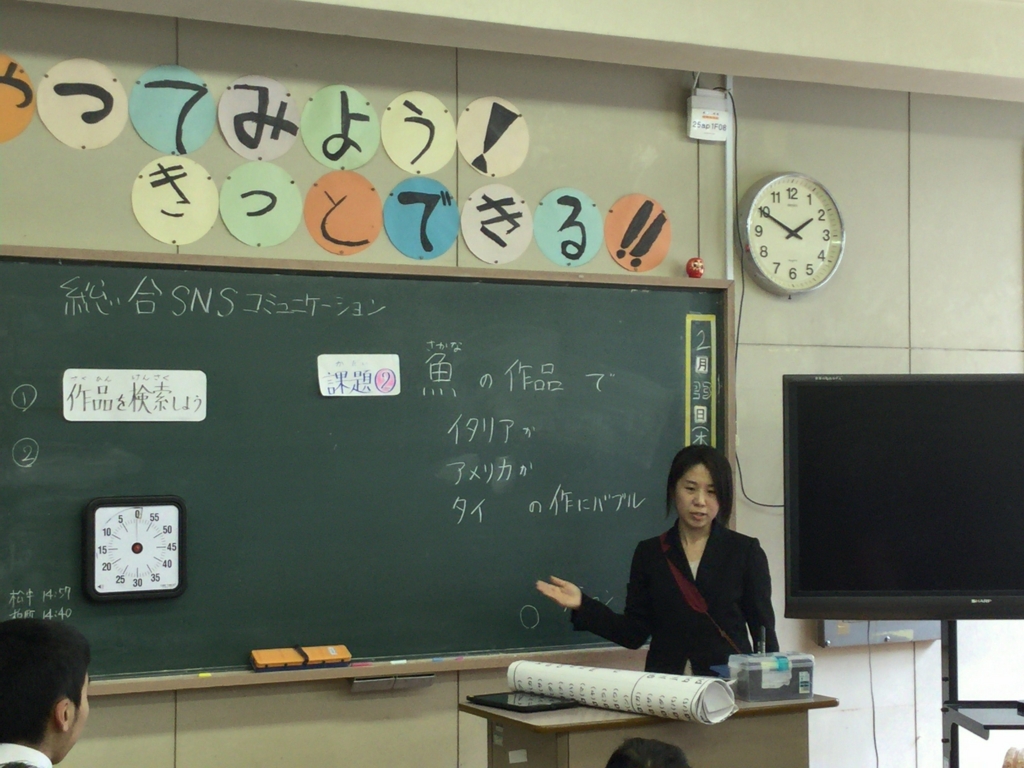 やってみよう!
きっとできる!!
25ap1F08
11 12 1 2 3 4 5 6 7 8 9 10
総合SNSコミュニケーション
① 作品を検索しよう
さくひん けんさく
②
課題②
かだい
さかな
魚の作品で
イタリアか
アメリカか
タイ の作にバブル
2月23日(木
0 55 50 45 40 35 30 25 20 15 10 5
14:57
14:40
SHARP